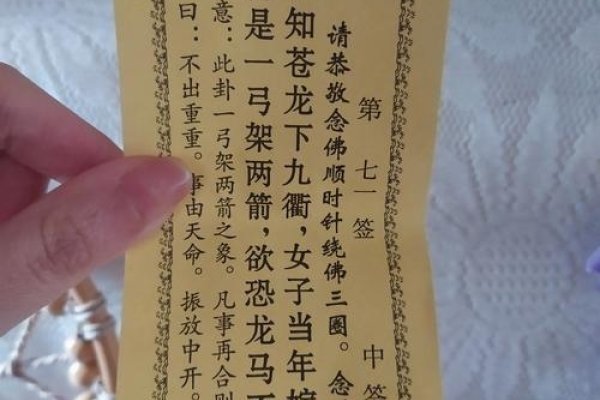 第七一签 中签
请恭敬念佛顺时针绕佛三圈。念
知苍龙下九衢，女子当年
是一弓架两箭，欲恐龙马
意：此卦一弓架两箭之象。凡事再合则
曰：不出重重。事由天命。振放中开。